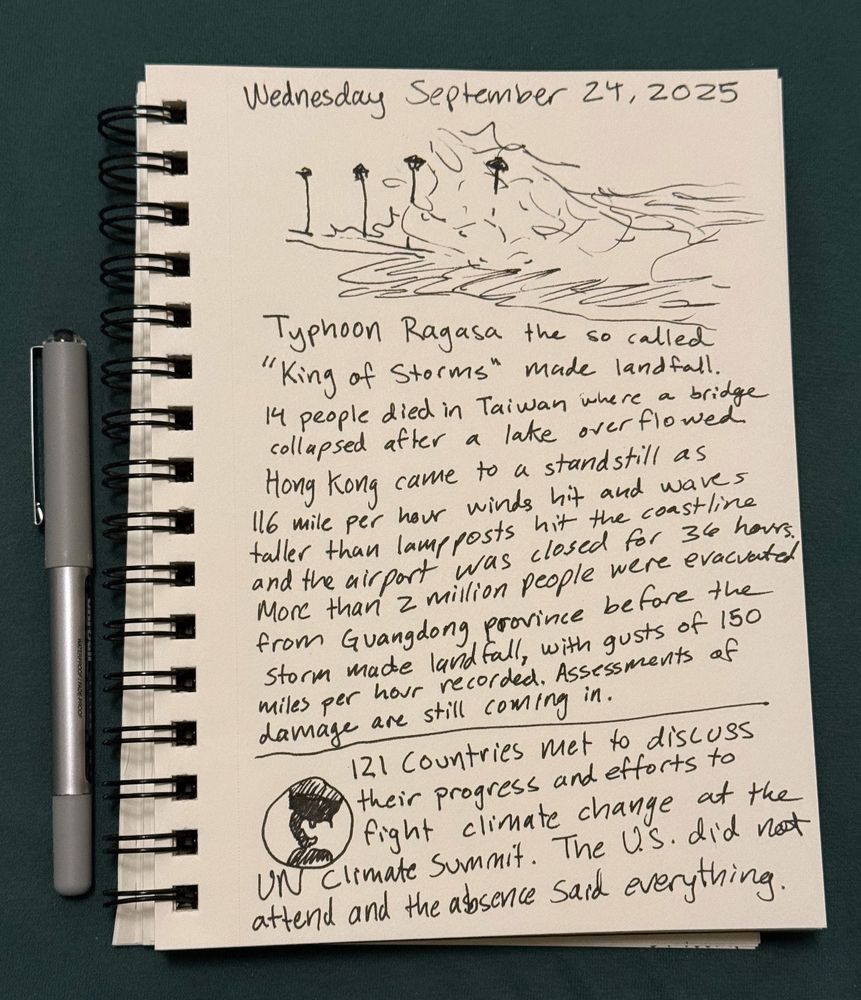 Wednesday September 24, 2025
Typhoon Ragasa the so called
"King of Storms" made landfall.
14 people died in Taiwan where a bridge
collapsed after a lake overflowed.
Hong Kong came to a standstill as
116 mile per hour winds hit and waves
taller than lampposts hit the coastline
and the airport was closed for 36 hours.
More than 2 million people were evacuated
from Guangdong province before the
storm made landfall, with gusts of 150
miles per hour recorded. Assessments of
damage are still coming in.
121 Countries met to discuss
their progress and efforts to
fight climate change at the
UN Climate Summit. The U.S. did not
attend and the absence said everything.